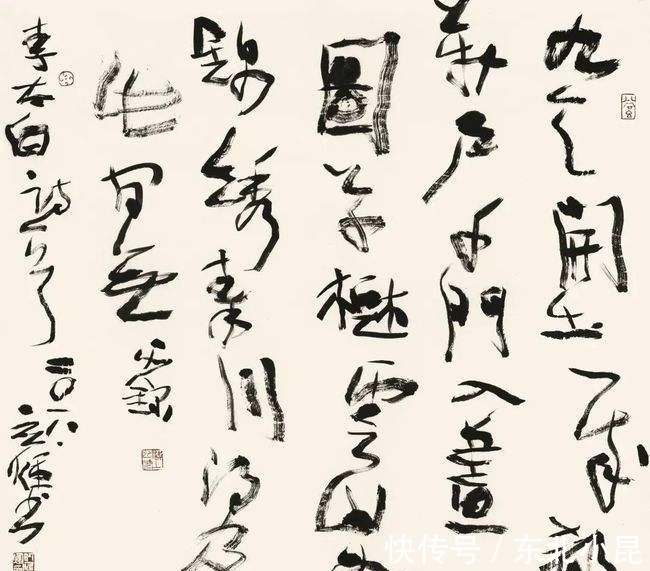 九天開出一成都
萬户千門入畫
圖草樹雲山如
錦綉秦川得及
此間無
李太白詩
快传号 / 东北小昆